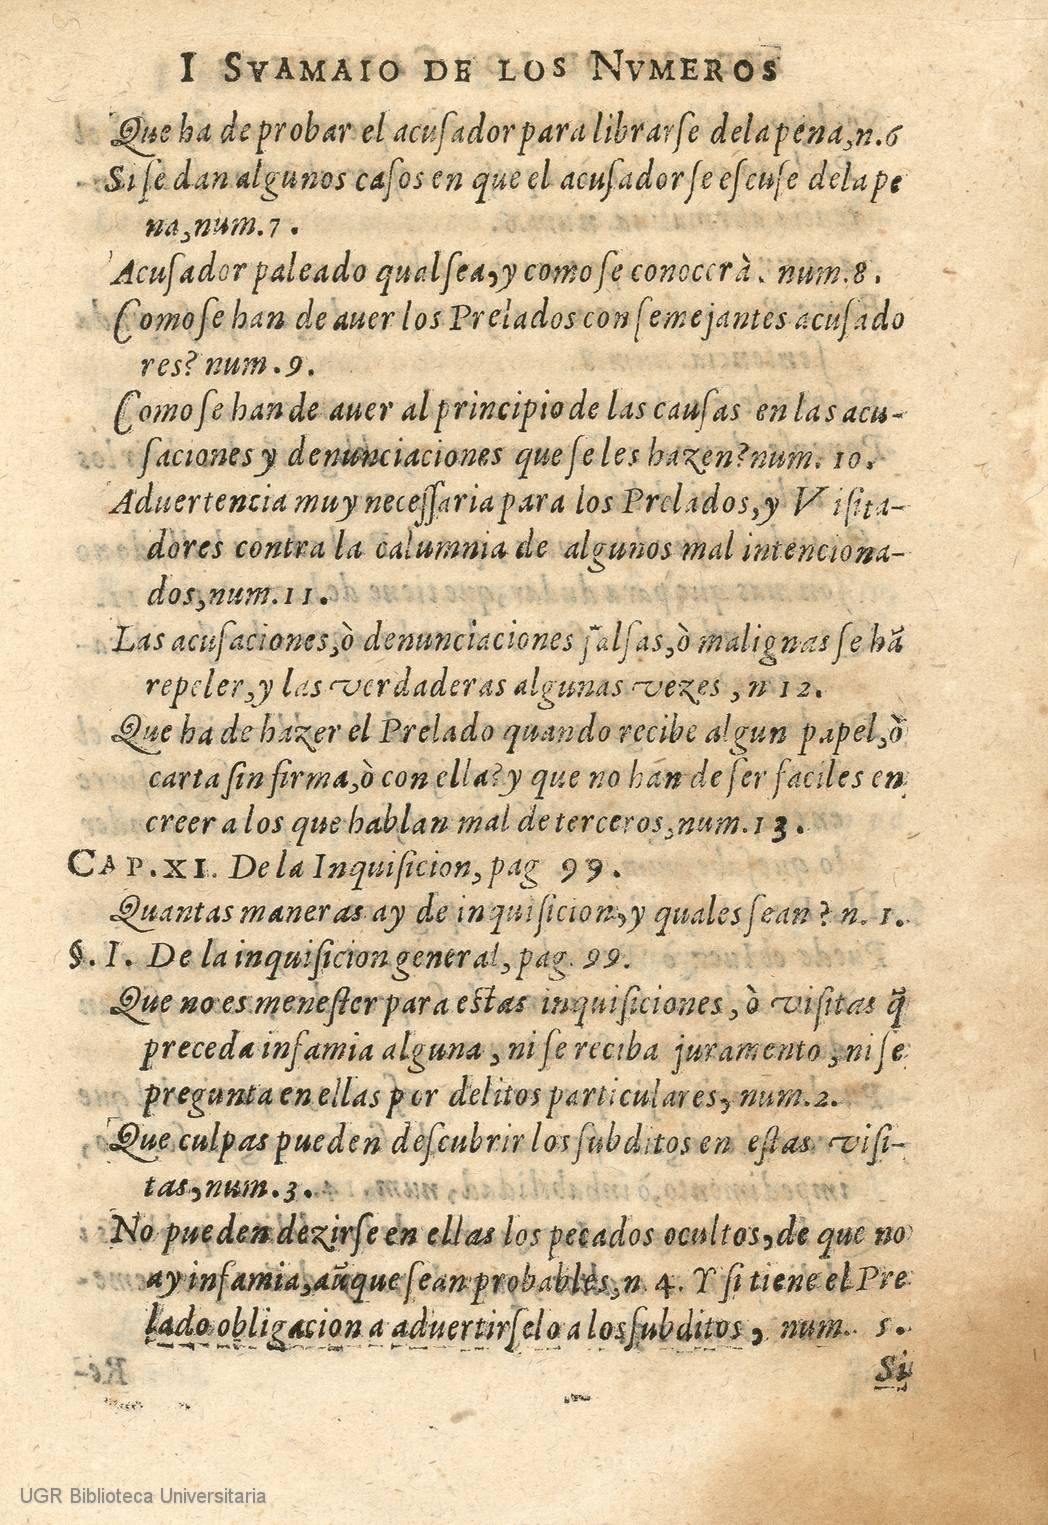 I SVAMAIO DE LOS NVMEROS
Que ha de probar el acuſador para librarſe dela pena, n.6
Si ſe dan algunos caſos en que el acuſador ſe eſcuſe dela pe
na, num.7.
Acuſador paleado qual ſea, y como ſe conocerà. num.8.
Como ſe han de auer los Prelados con ſemejantes acuſado
res? num.9.
Como ſe han de auer al principio de las cauſas en las acu-
ſaciones y denunciaciones que ſe les hazen? num. 10.
Aduertencia muy neceſſaria para los Prelados, y Viſita-
dores contra la calumnia de algunos mal intenciona-
dos, num.11.
Las acuſaciones, ò denunciaciones falſas, ò malignas ſe hã
repeler, y las verdaderas algunas vezes, n 12.
Que ha de hazer el Prelado quando recibe algun papel, ò
carta ſin firma, ò con ella? y que no han de ſer faciles en
creer a los que hablan mal de terceros, num.13.
CAP.XI. De la Inquiſicion, pag 99.
Quantas maneras ay de inquiſicion, y quales ſean? n. 1.
§. I. De la inquiſicion general, pag. 99.
Que no es meneſter para eſtas inquiſiciones, ò viſitas q̃
preceda infamia alguna, ni ſe reciba juramento, ni ſe
pregunta en ellas por delitos particulares, num.2.
Que culpas pueden deſcubrir los ſubditos en eſtas viſi-
tas, num.3.
No pueden dezirſe en ellas los pecados ocultos, de que no
ay infamia, aũque ſean probables, n. 4. Y ſi tiene el Pre
lado obligacion a aduertirſelo a los ſubditos, num. 5.
Si
UGR Biblioteca Universitaria